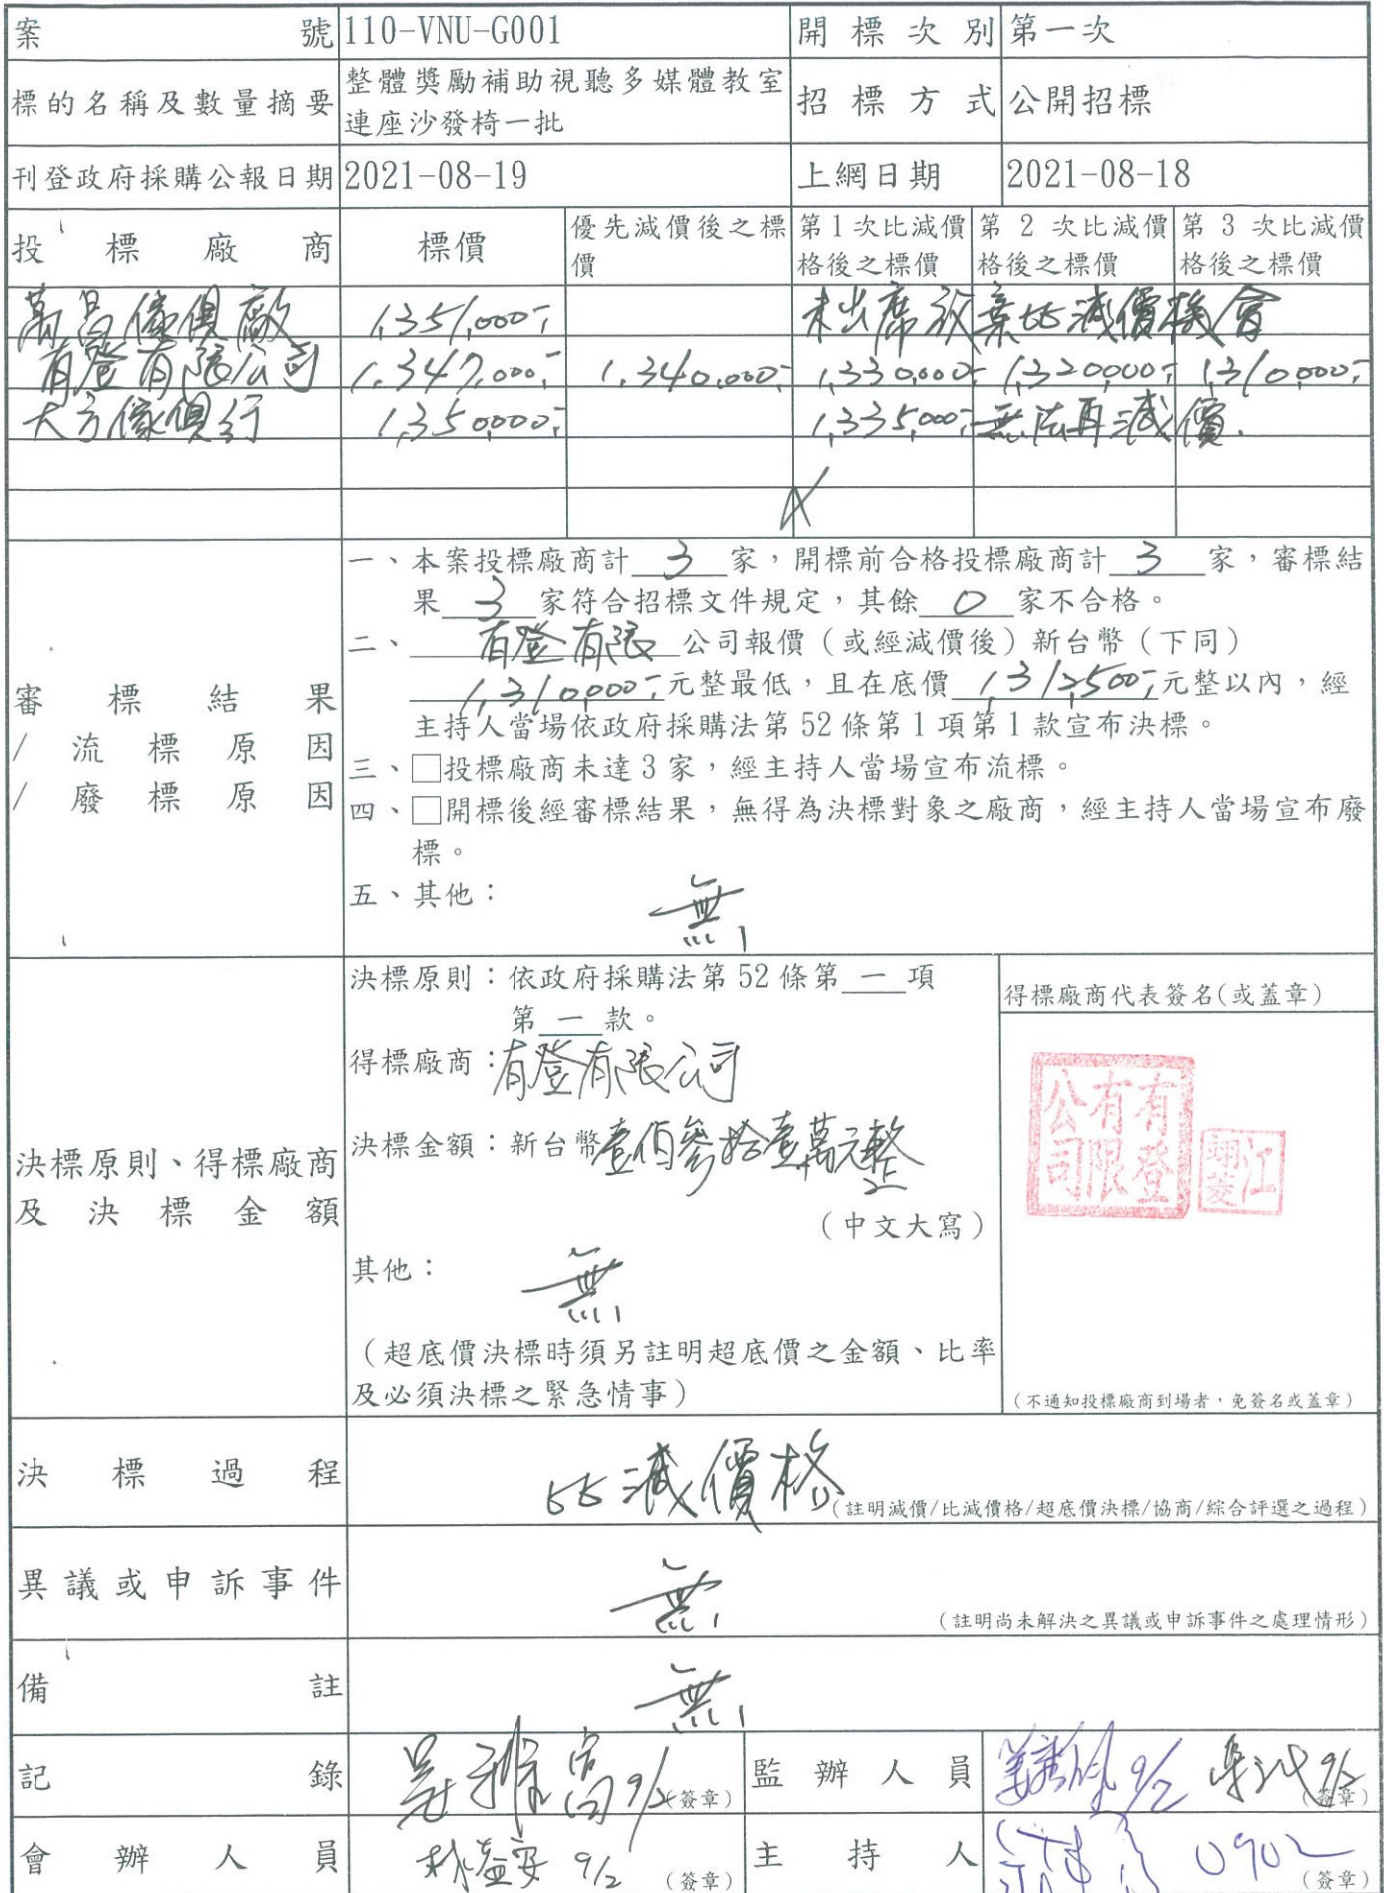 案號 110-VNU-G001 開標次別 第一次
標的名稱及數量摘要 整體獎勵補助視聽多媒體教室
連座沙發椅一批 招標方式 公開招標
刊登政府採購公報日期 2021-08-19 上網日期 2021-08-18
投標廠商 標價 優先減價後之標價 第1次比減價格後之標價 第2次比減價格後之標價 第3次比減價格後之標價
萬昌傢俱廠 1,351,000- 未出席放棄比減價機會
有登有限公司 1,347,000- 1,340,000- 1,330,000- 1,320,000- 1,310,000-
大方傢俱行 1,350,000- 1,335,000- 無法再減價.
審標結果
/流標原因
/廢標原因
一、本案投標廠商計 3 家,開標前合格投標廠商計 3 家,審標結
果 3 家符合招標文件規定,其餘 0 家不合格。
二、 有登有限 公司報價(或經減價後)新台幣(下同)
1,310,000- 元整最低,且在底價 1,312,500- 元整以內,經
主持人當場依政府採購法第52條第1項第1款宣布決標。
三、□投標廠商未達3家,經主持人當場宣布流標。
四、□開標後經審標結果,無得為決標對象之廠商,經主持人當場宣布廢
標。
五、其他: 無
決標原則、得標廠商
及決標金額
決標原則:依政府採購法第52條第 一 項
第 一 款。
得標廠商:有登有限公司
決標金額:新台幣壹佰參拾壹萬元整
(中文大寫)
其他: 無
(超底價決標時須另註明超底價之金額、比率
及必須決標之緊急情事)
得標廠商代表簽名(或蓋章)
有登有限公司
江翊菱
(不通知投標廠商到場者,免簽名或蓋章)
決標過程 比減價格
(註明減價/比減價格/超底價決標/協商/綜合評選之過程)
異議或申訴事件 無
(註明尚未解決之異議或申訴事件之處理情形)
備註 無
記錄 9/2 (簽章) 監辦人員 9/2 9/2 (簽章)
會辦人員 林益安 9/2 (簽章) 主持人 0902 (簽章)